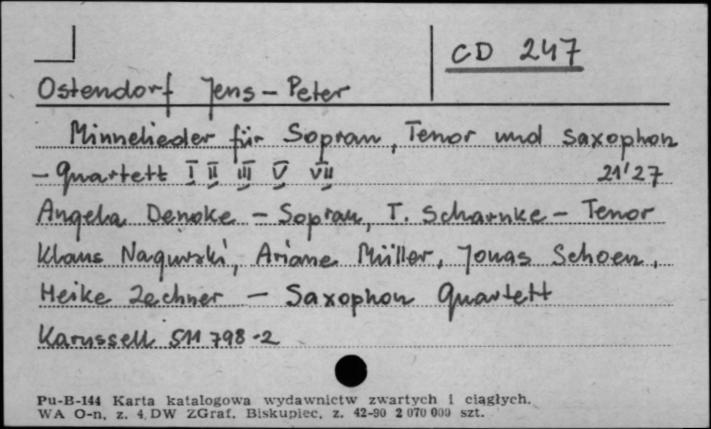 CD 247
Ostendorf Jens-Peter
Minnelieder für Sopran, Tenor und Saxophon
- Quartett I II III V VII 21'27
Angela Denoke - Sopran, T. Scharnke - Tenor
Klaus Nagurski, Ariane Müller, Jonas Schoen,
Heike Zechner - Saxophon Quartett
Karussell 511 798-2
Pu-B-144 Karta katalogowa wydawnictw zwartych i ciągłych.
WA O-n. z. 4. DW ZGraf. Biskupiec, z. 42-90 2 070 000 szt.